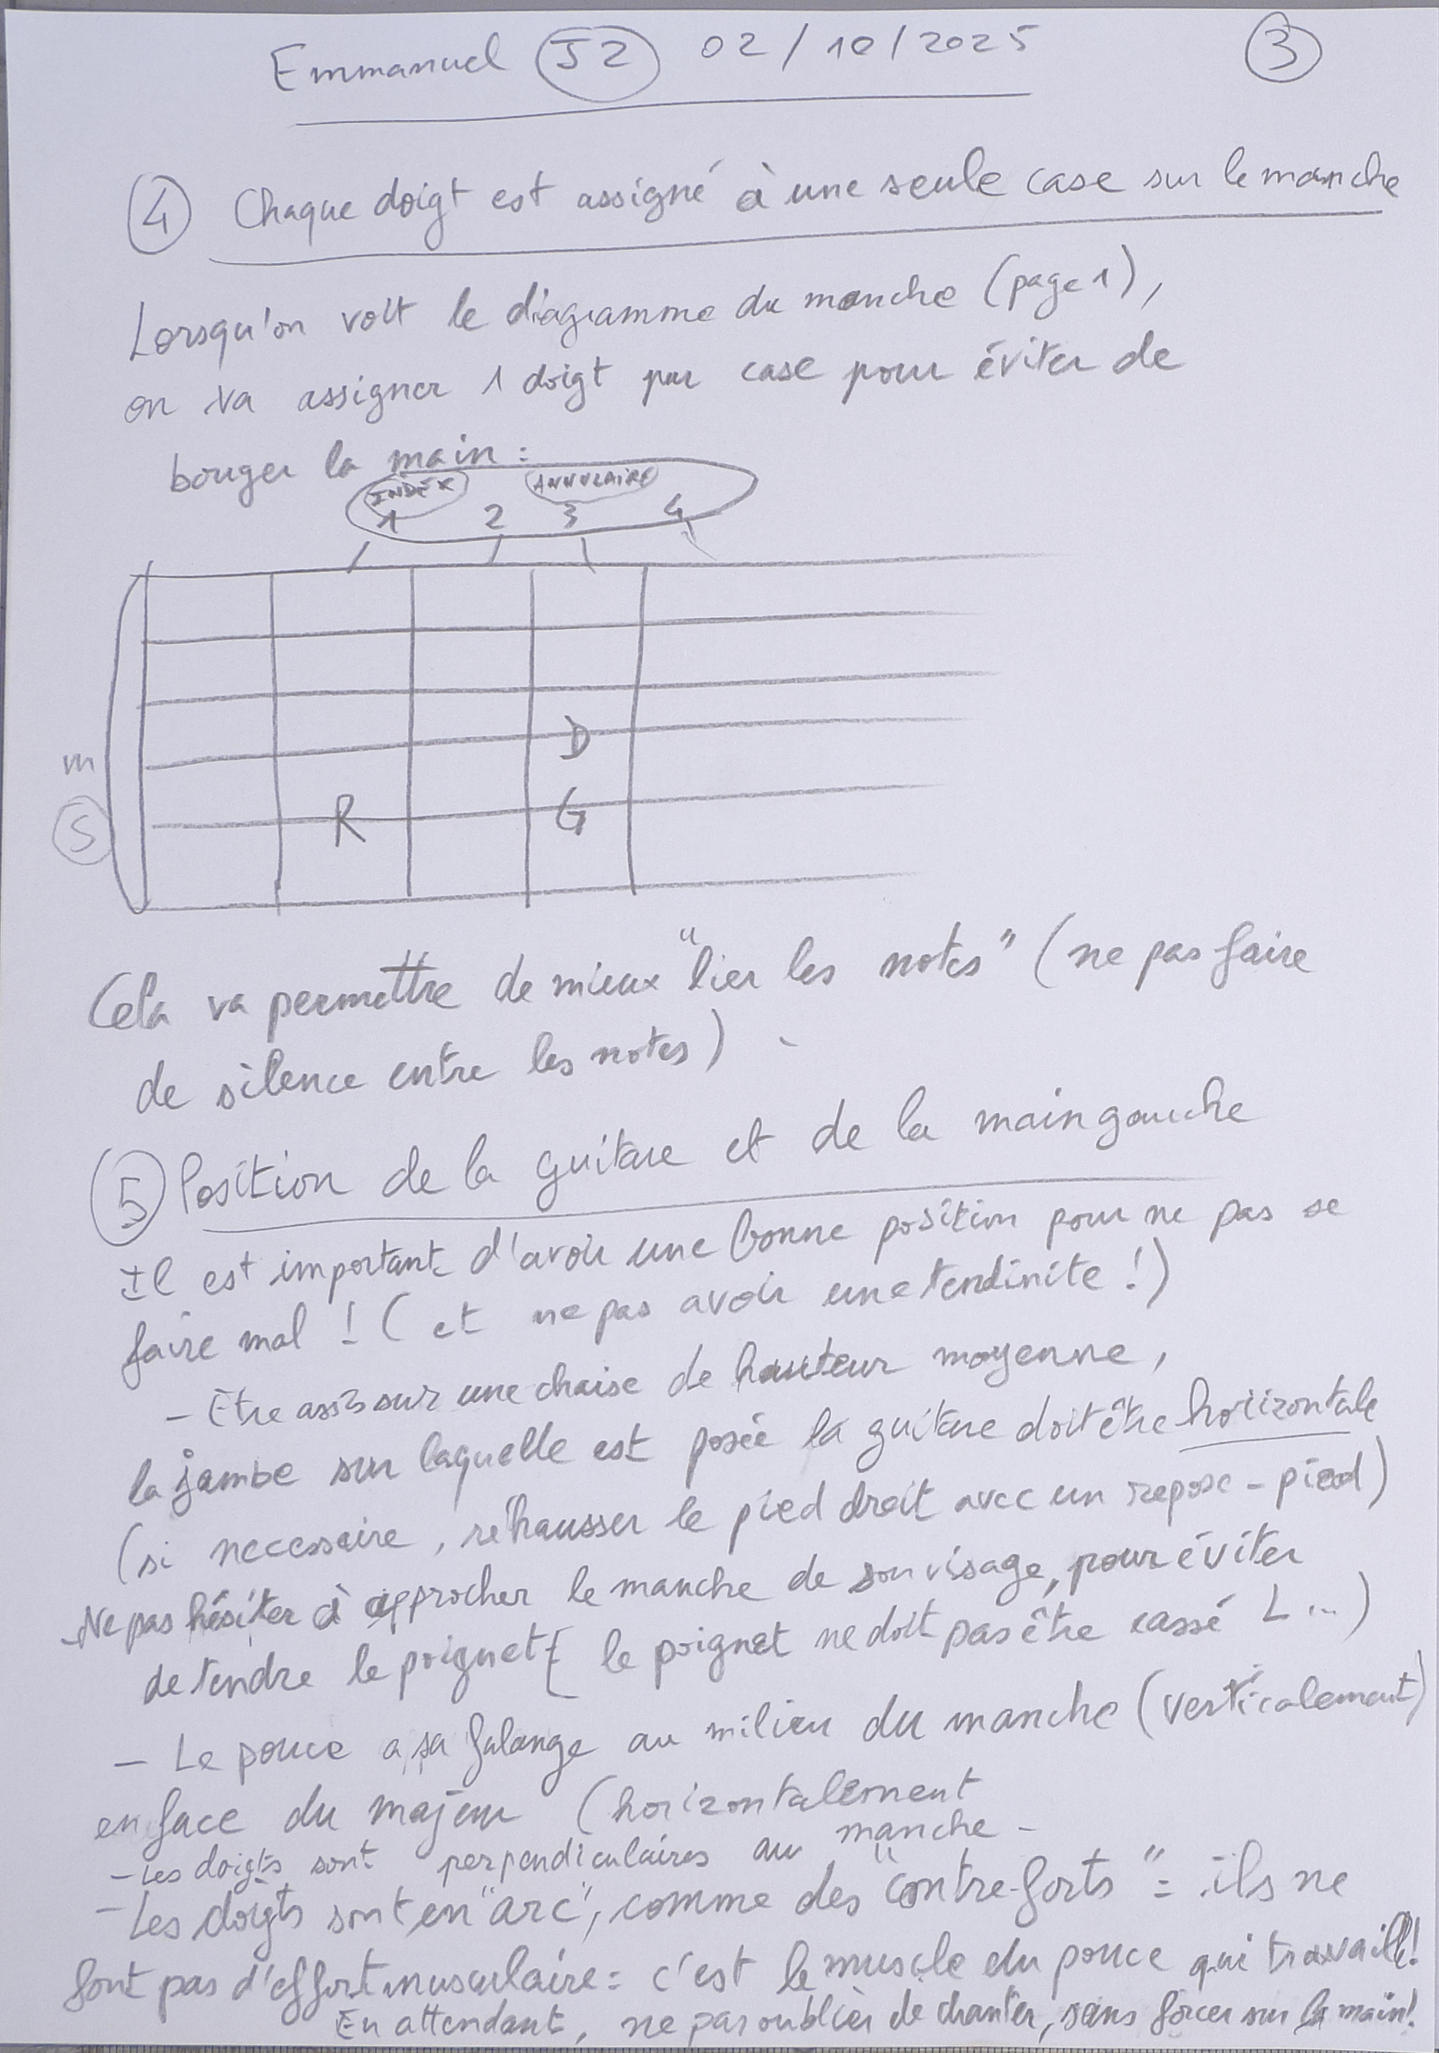 Emmanuel J2 02/10/2025 3
4 Chaque doigt est assigné à une seule case sur le manche
Lorsqu'on voit le diagramme du manche (page 1),
on va assigner 1 doigt par case pour éviter de
bouger la main :
INDEX ANNULAIRE
1 2 3 4
D
m
S R G
Cela va permettre de mieux "lier les notes" (ne pas faire
de silence entre les notes).
5 Position de la guitare et de la main gauche
Il est important d'avoir une bonne position pour ne pas se
faire mal ! (et ne pas avoir une tendinite !)
- Etre assis sur une chaise de hauteur moyenne,
la jambe sur laquelle est posée la guitare doit être horizontale
(si necessaire, réhausser le pied droit avec un repose-pied)
- Ne pas hésiter à approcher le manche de son visage, pour éviter
de tendre le poignet ( le poignet ne doit pas être cassé L ...)
- Le pouce a sa falange au milieu du manche (verticalement)
en face du majeur (horizontalement
- Les doigts sont perpendiculaires au manche -
- Les doigts sont en "arc", comme des "contre-forts" = ils ne
font pas d'effort musculaire : c'est le muscle du pouce qui travaille !
En attendant, ne pas oublier de chanter, sans forcer sur la main !